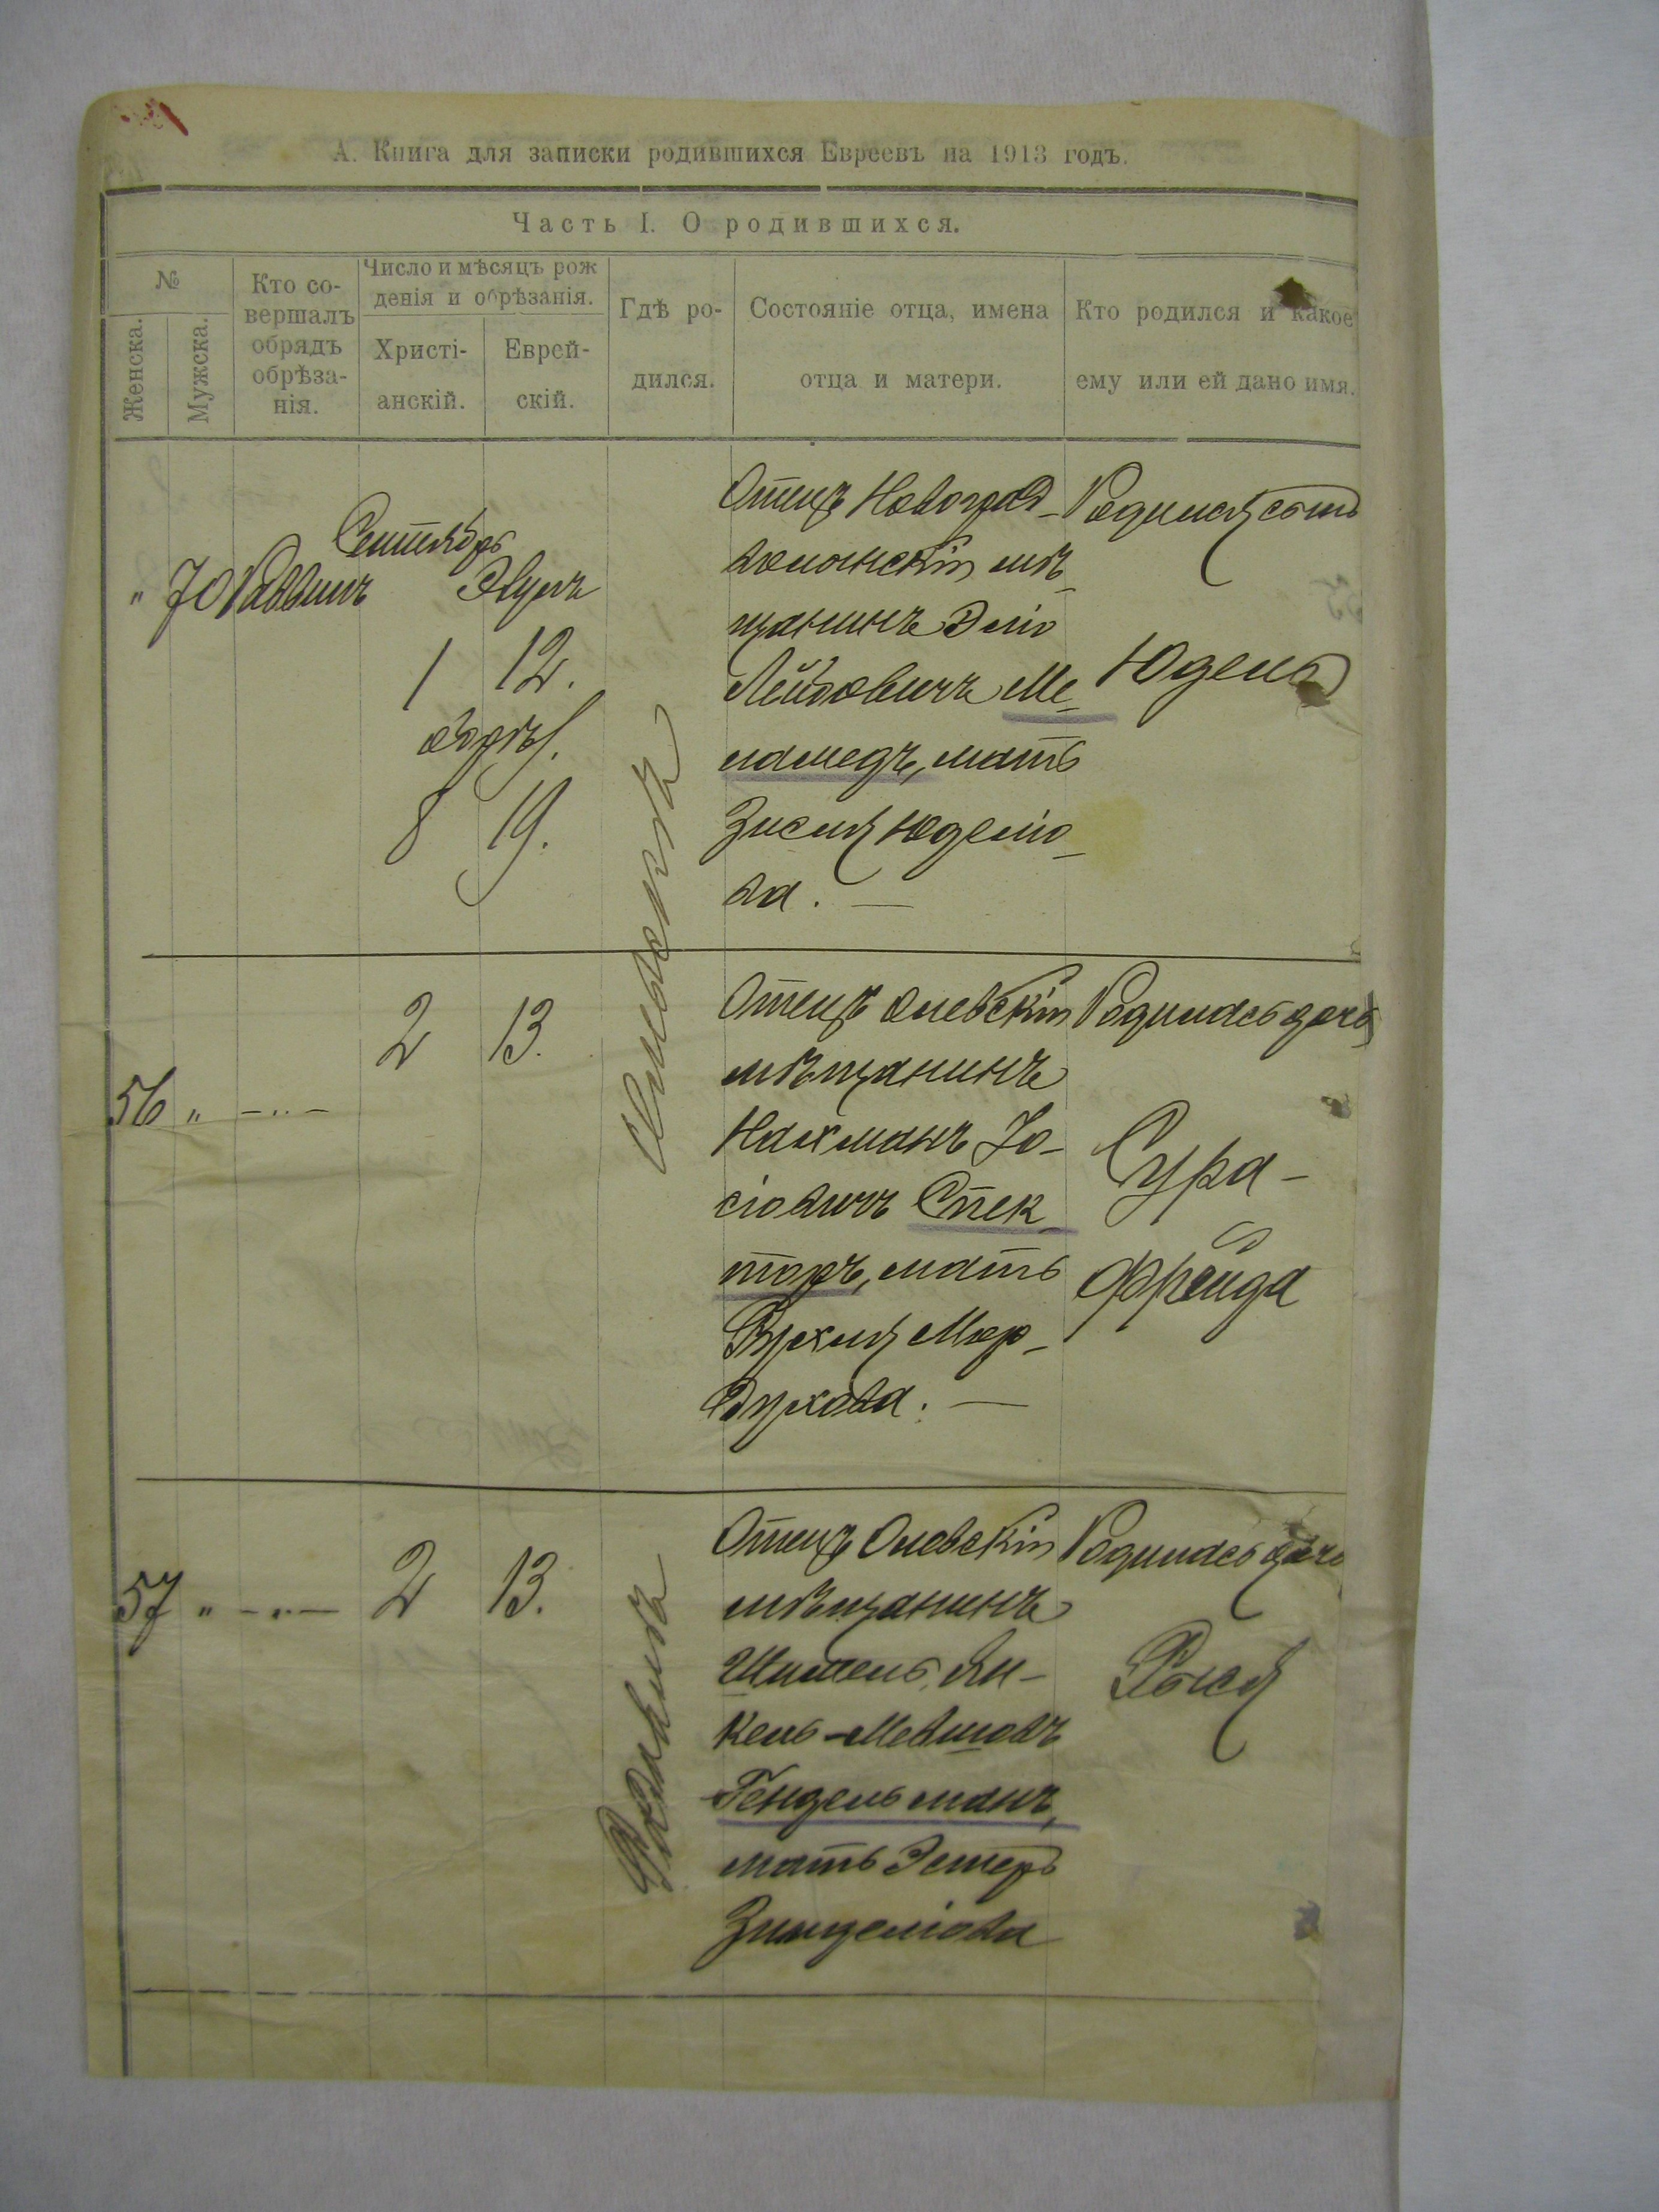 А. Книга для записки родившихся Евреевъ на 1913 годъ.
Часть I. О родившихся.
№
Женска.
Мужска.
Кто со-
вершалъ
обрядъ
обрѣза-
нія.
Число и мѣсяцъ рож
денія и обрѣзанія.
Христі-
анскій.
Еврей-
скій.
Гдѣ ро-
дился.
Состояніе отца, имена
отца и матери.
Кто родился и какое
ему или ей дано имя.
" 70 Раввинъ
Сентябрь
Элулъ
1 12.
обрѣз.
8 19.
Отецъ Новоград-
волынскій мѣ-
щанинъ Эліо
Лейбовичъ Ме-
ламедъ, мать
Зисля Юделіо-
ва. —
Родился сынъ
Юдель
56 " — " —
2 13.
Отецъ Олевскій
мѣщанинъ
Нахманъ Іо-
сіовичъ Спек-
торъ, мать
Рухля Мор-
духова. —
Родилась дочь
Сура-
Фрейда
57 " — " —
2 13.
Отецъ Олевскій
мѣщанинъ
Янкель-Мевшовъ
Гендельманъ,
мать Эстеръ
Родилась дочь
Рыся